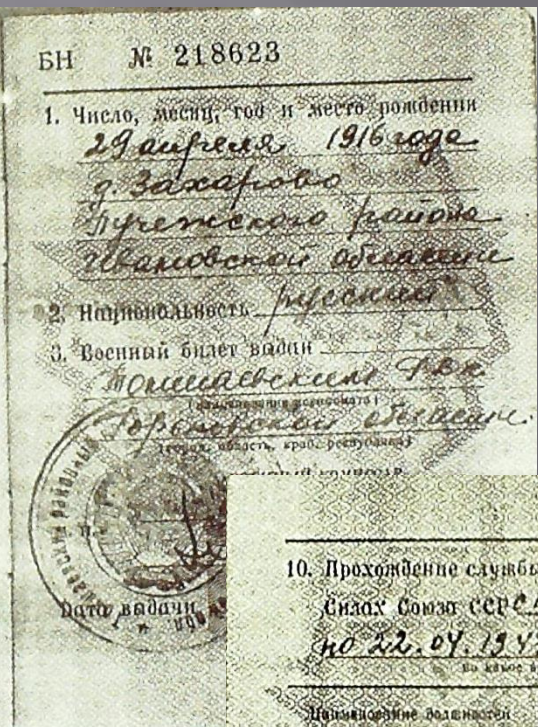 БН № 218623
1. Число, месяц, год и место рождения
29 апреля 1916 года
д. Захарово
Пучежского района
Ивановской области
2. Национальность русский
3. Военный билет выдан
Тоншаевским РВК
(наименование военкомата)
Горьковской области.
(город, область, край, республика)
Дата выдачи
10. Прохождение службы
Силах Союза ССР с
по 22.04.194
по какое
Наименование должностей